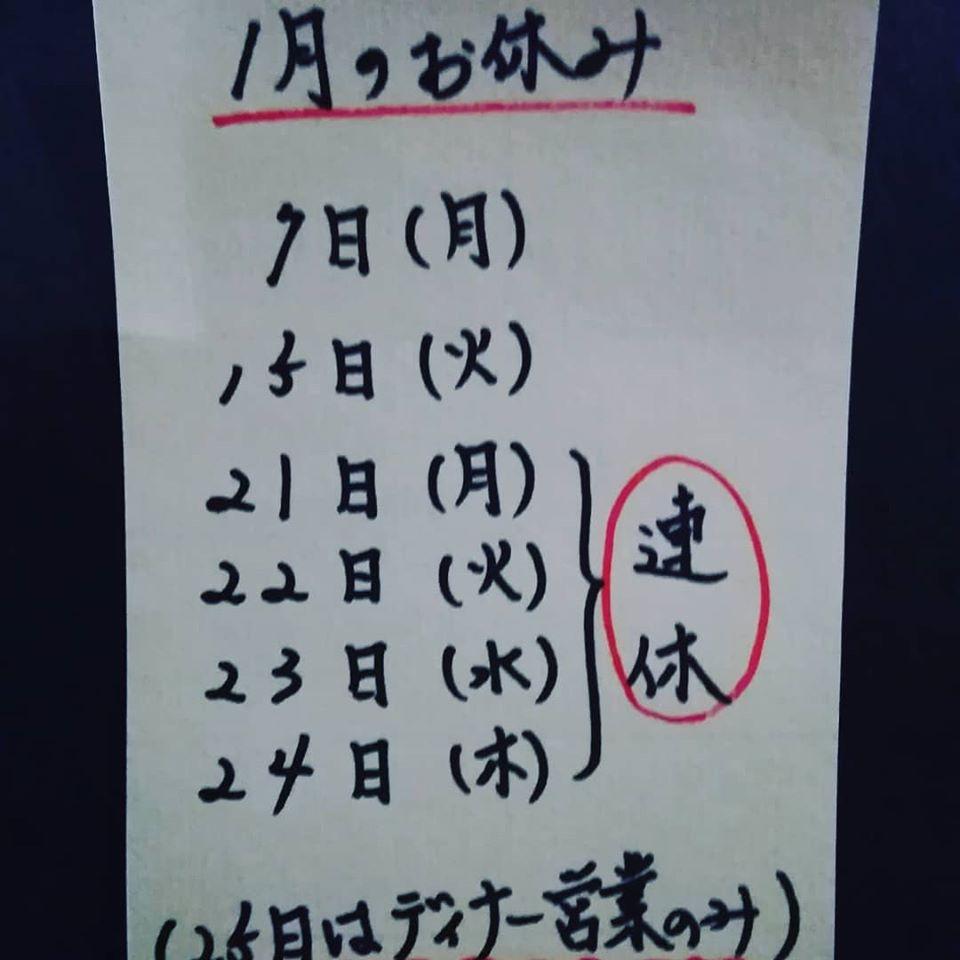 1月のお休み
7日(月)
15日(火)
21日(月)
22日(火)
23日(水)
24日(木)
連休
(25日はディナー営業のみ)